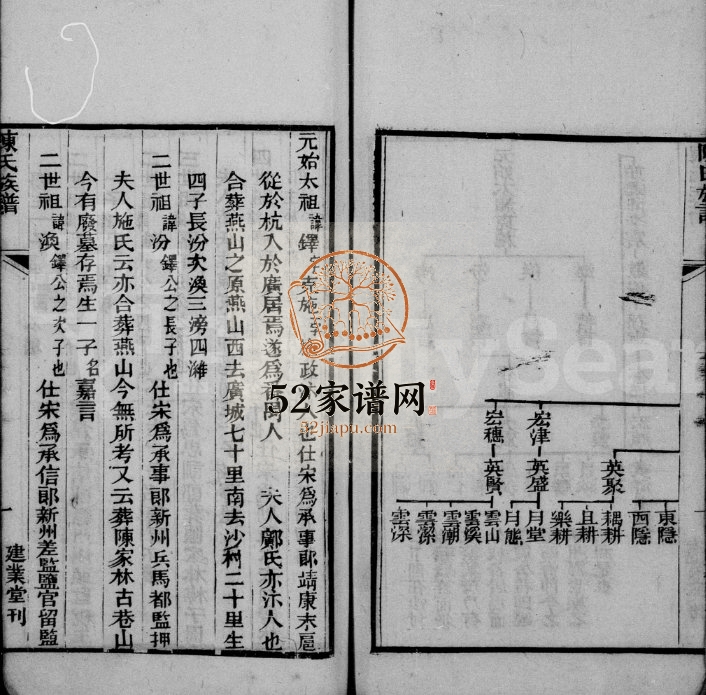 東隱
西隱
英聚
耦耕
且耕
樂耕
宏津
英盛
月堂
月態
宏穗
英賢
雲山
雲溪
雲潮
雲深
陳氏族譜
元始太祖 諱 鐸 仕宋為承事郎靖康末扈
從於杭入於廣居焉遂為 人 夫人鄺氏亦汴人也
合葬燕山之原燕山西去廣城七十里南去沙村二十里生
四子長汾次渙三滂四濰
二世祖 諱 汾 鐸公之長子也 仕宋為承事郎新州兵馬都監押
夫人施氏云亦合葬燕山今無所考又云葬陳家林古巷山
今有廢墓存焉生一子 名 嘉言
二世祖 諱 渙 鐸公之次子也 仕宋為承信郎新州差監鹽官留監
陳氏族譜
一
建業堂刊
52家谱网
52jiapu.com